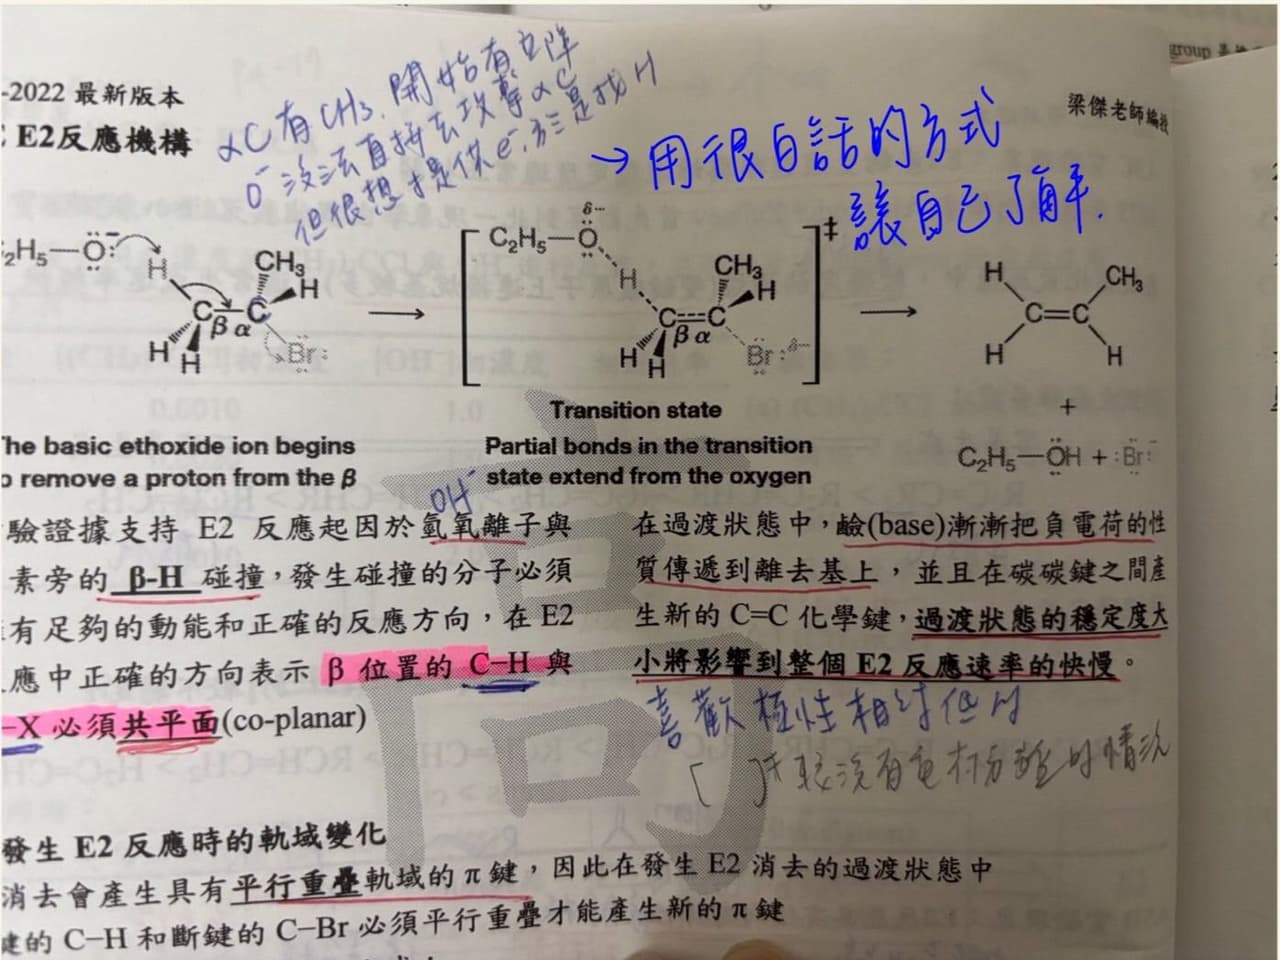 group
-2022 最新版本
梁傑老師編授
E2反應機構
αC有CH₃.開始有立障
O⁻沒法直接去攻擊αC
但很想提供e⁻,於是找H
→用很白話的方式
讓自己了解.
C₂H₅—Ö:⁻
H
CH₃
H
C—C
β α
H
H
Br:
C₂H₅—Ö δ⁻
H
CH₃
H
C=C
β α
H
H
Br: δ⁻
‡
H
CH₃
C=C
H
H
+
C₂H₅—ÖH + :Br:⁻
Transition state
The basic ethoxide ion begins
o remove a proton from the β
Partial bonds in the transition
state extend from the oxygen
OH⁻
驗證據支持 E2 反應起因於氫氧離子與
素旁的 β-H 碰撞，發生碰撞的分子必須
有足夠的動能和正確的反應方向，在 E2
應中正確的方向表示 β 位置的 C−H 與
−X 必須共平面(co-planar)
在過渡狀態中，鹼(base)漸漸把負電荷的性
質傳遞到離去基上，並且在碳碳鍵之間產
生新的 C=C 化學鍵，過渡狀態的穩定度大
小將影響到整個 E2 反應速率的快慢。
喜歡極性相對低的
[ ]‡較沒有電荷分離的情況
高
發生 E2 反應時的軌域變化
消去會產生具有平行重疊軌域的 π 鍵，因此在發生 E2 消去的過渡狀態中
鍵的 C−H 和斷鍵的 C−Br 必須平行重疊才能產生新的 π 鍵